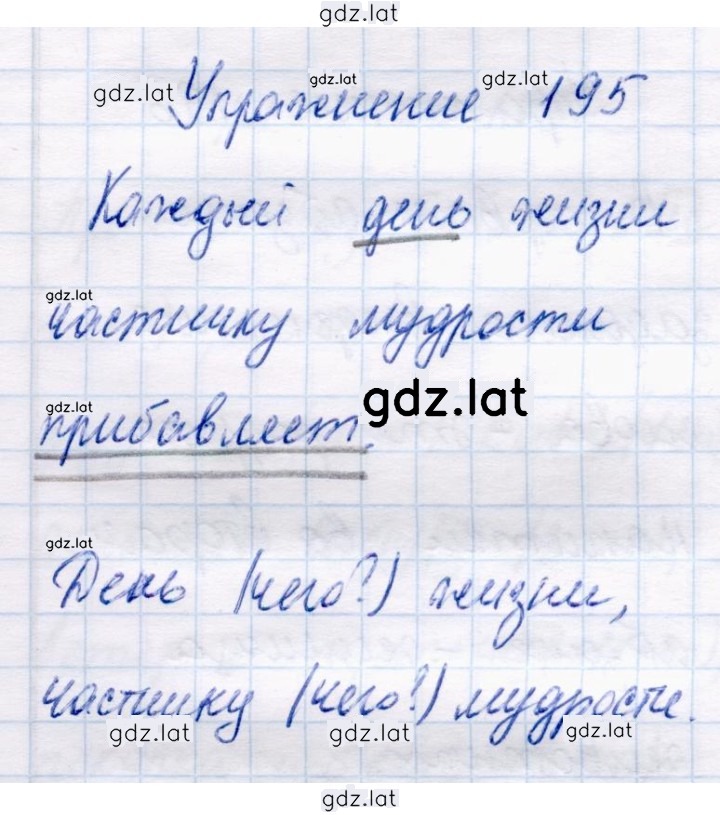 gdz.lat
gdz.lat gdz.lat gdz.lat
Упражнение 195
Каждый день жизни
gdz.lat
частичку мудрости
gdz.lat gdz.lat
прибавляет.
gdz.lat
День (чего?) жизни,
частичку (чего?) мудрости.
gdz.lat gdz.lat gdz.lat
gdz.lat